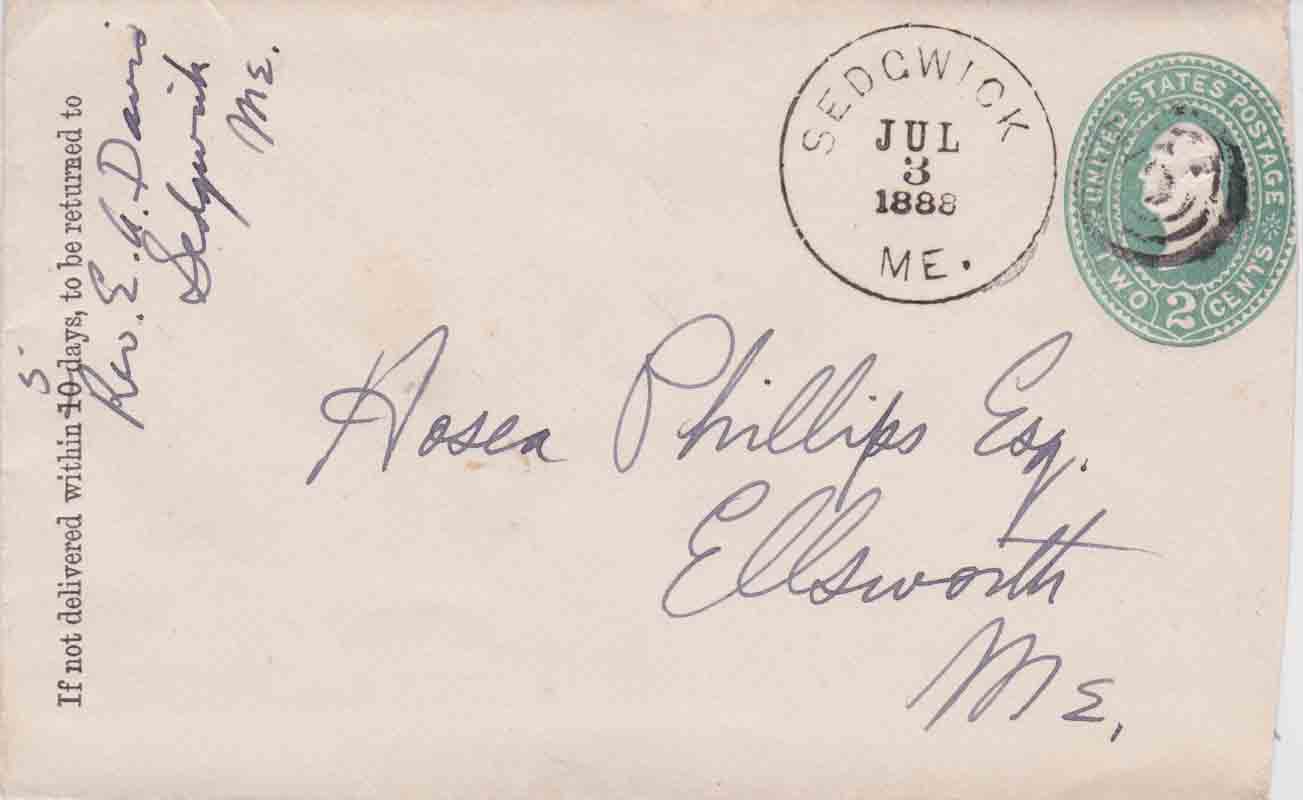 If not delivered within 10 days, to be returned to
5
Rev. E. A. Davis
Sedgwick
Me.
SEDGWICK
JUL
3
1888
ME.
UNITED STATES POSTAGE
TWO 2 CENTS
Hosea Phillips Esq.
Ellsworth
Me,